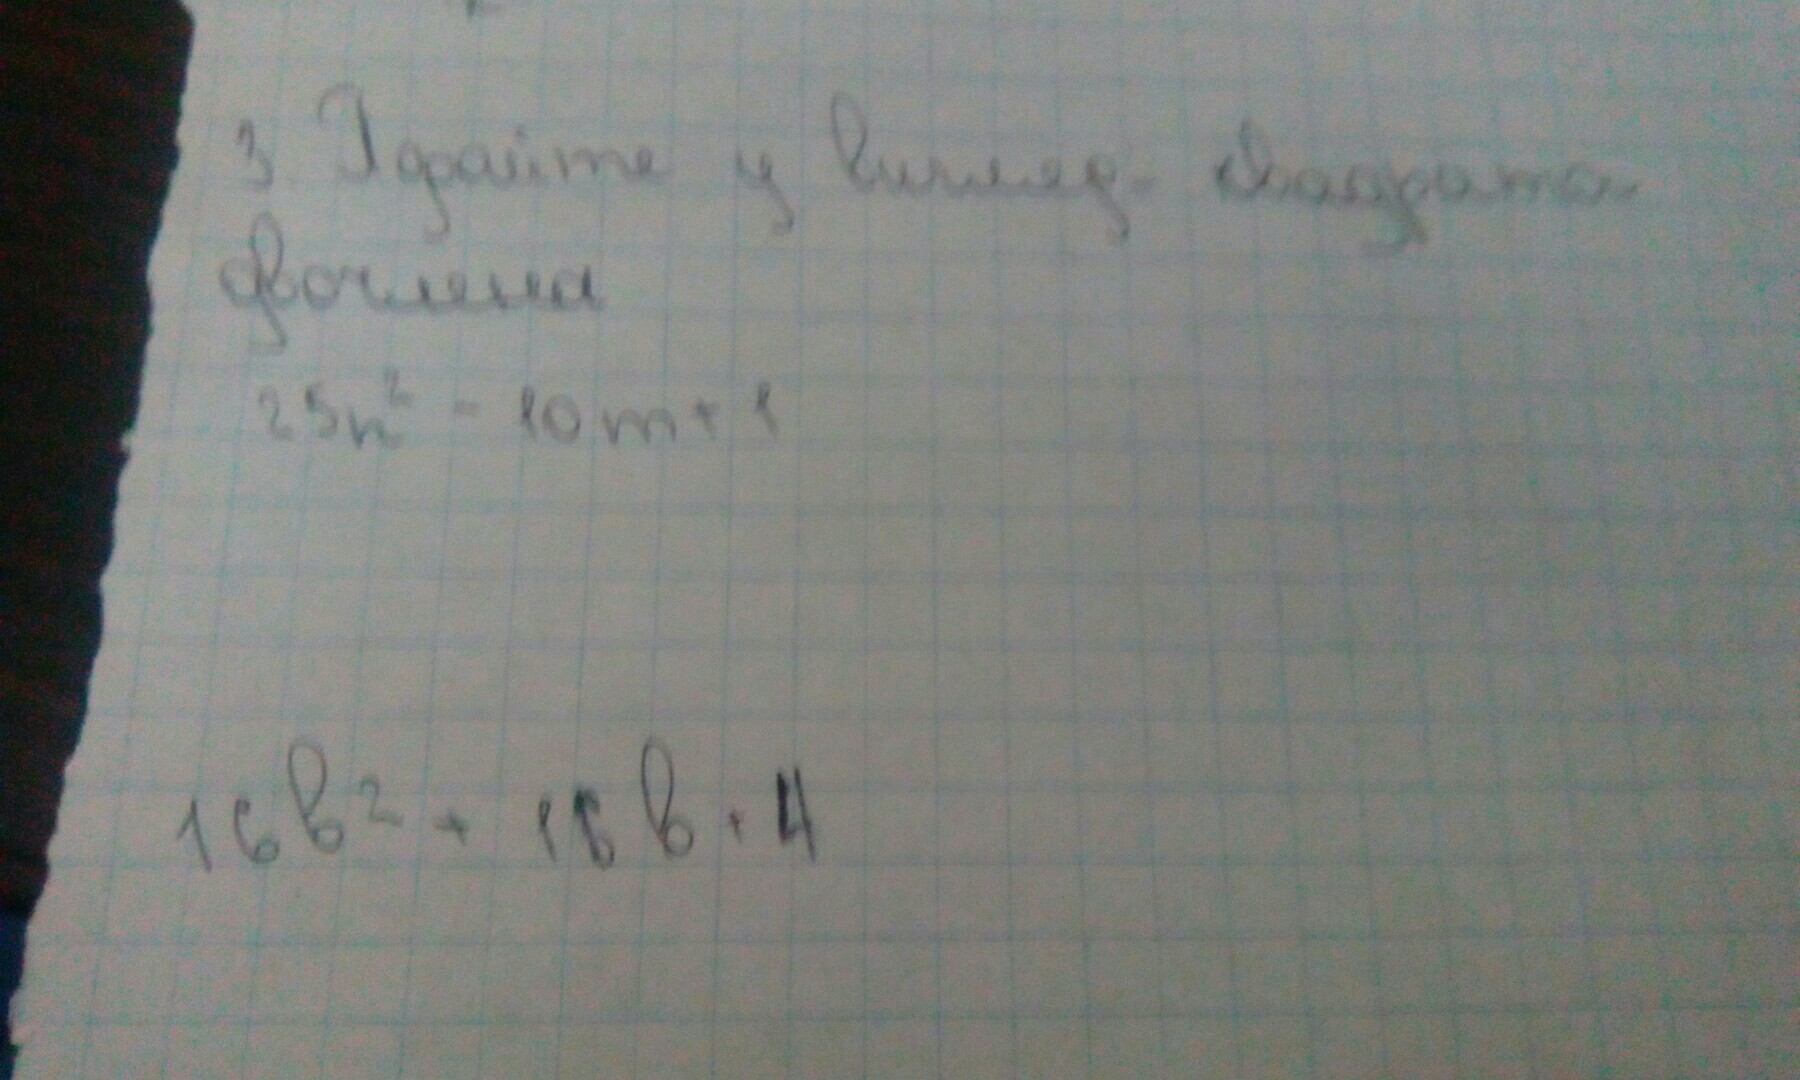 3. Здайте у вигляд- квадрата
двочлена
25n² - 10m + 1
16b² + 16b + 4